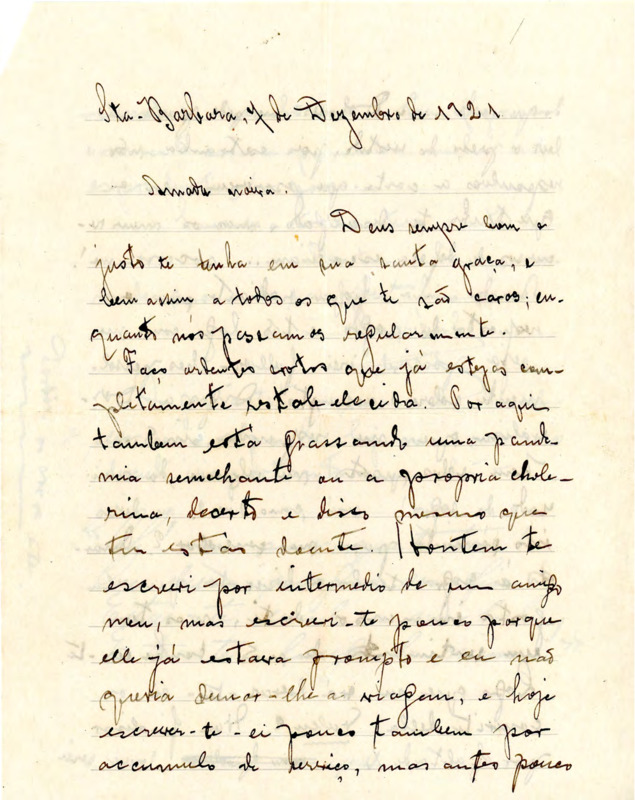 Sta-Barbara, 7 de Dezembro de 1921
Amada noiva.
Deus sempre bom e
justo te tenha em sua santa graça, e
bem assim a todos os que te são caros; en-
quanto nós passamos regularmente.
Faço ardentes votos que já estejas com-
pletamente restabelecida. Por aqui
tambem está grassando uma pande-
mia semelhante ou a propria chole-
rina, decerto é disso mesmo que
tu estás doente. Hontem te
escrevi por intermedio de um amigo
meu, mas escrevi-te pouco porque
elle já estava prompto e eu não
queria demorar-lhe a viagem, e hoje
escrever-te-ei pouco tambem por
accumulo de serviço, mas antes pouco